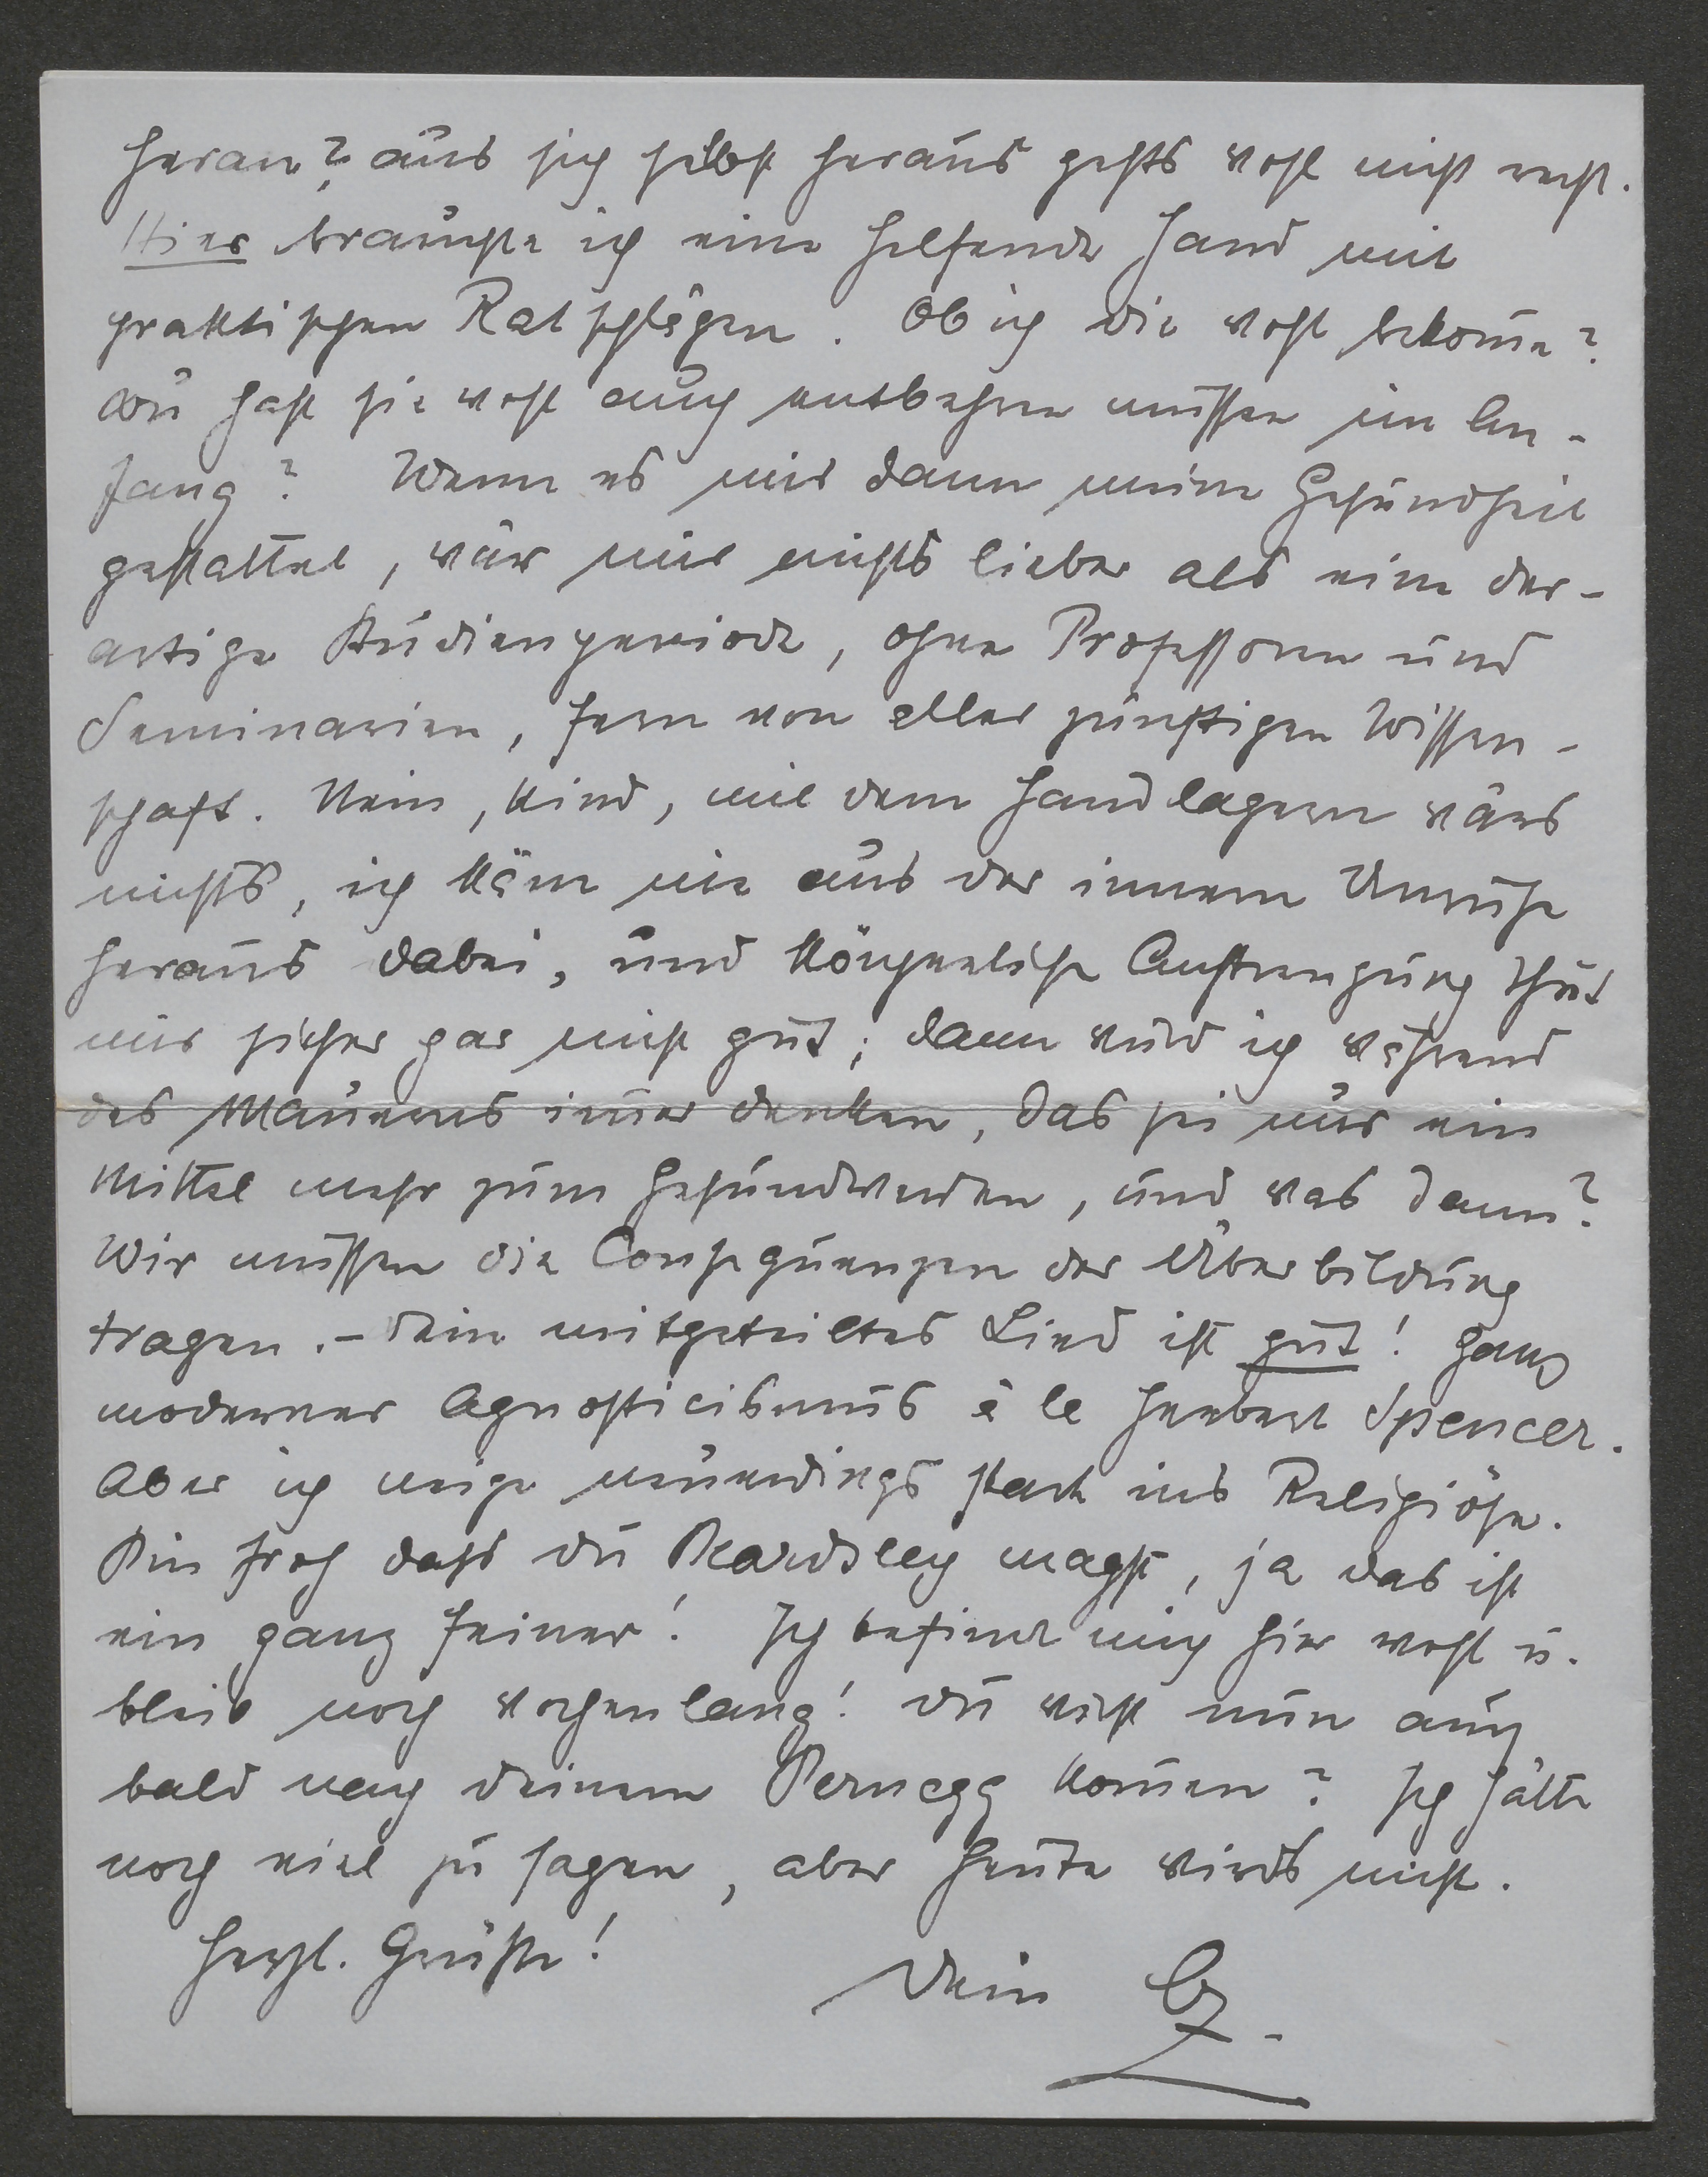 heran? aus sich selbst heraus gehts wohl nicht recht.
Hier brauchte ich eine helfende Hand mit
praktischen Ratschlägen. Ob ich die wohl bekom̄e?
Du hast sie wohl auch entbehren müssen im An-
fang? Wenn es mir dann meine Gesundheit
gestattet, wär mir nichts lieber als eine der-
artige Studienperiode, ohne Professoren und
Seminarien, fern von aller zünftigen Wissen-
schaft. Nein, Kind, mit dem Handlagern wärs
nichts, ich käm nie aus der innern Unruhe
heraus dabei, und körperliche Anstrengung thut
mir sicher gar nicht gut; dann würd ich während
des Mauerns im̄er denken, das sei nur ein
Mittel mehr zum Gesundwerden, und was dann?
Wir müssen die Consequenzen der Überbildung
tragen. – Dein mitgeteiltes Lied ist gut! Ganz
moderner Agnosticismus à la Herbert Spencer.
Aber ich neige neuerdings stark ins Religiöse.
Bin froh dass du Beardsley magst, ja das ist
ein ganz feiner! Ich befinde mich hier wohl u.
bleib noch wochenlang! Du wirst nun auch
bald nach deinem Pernegg kom̄en? Ich hätte
noch viel zu sagen, aber heute wirds nicht.
Herzl. Grüsse!
Dein